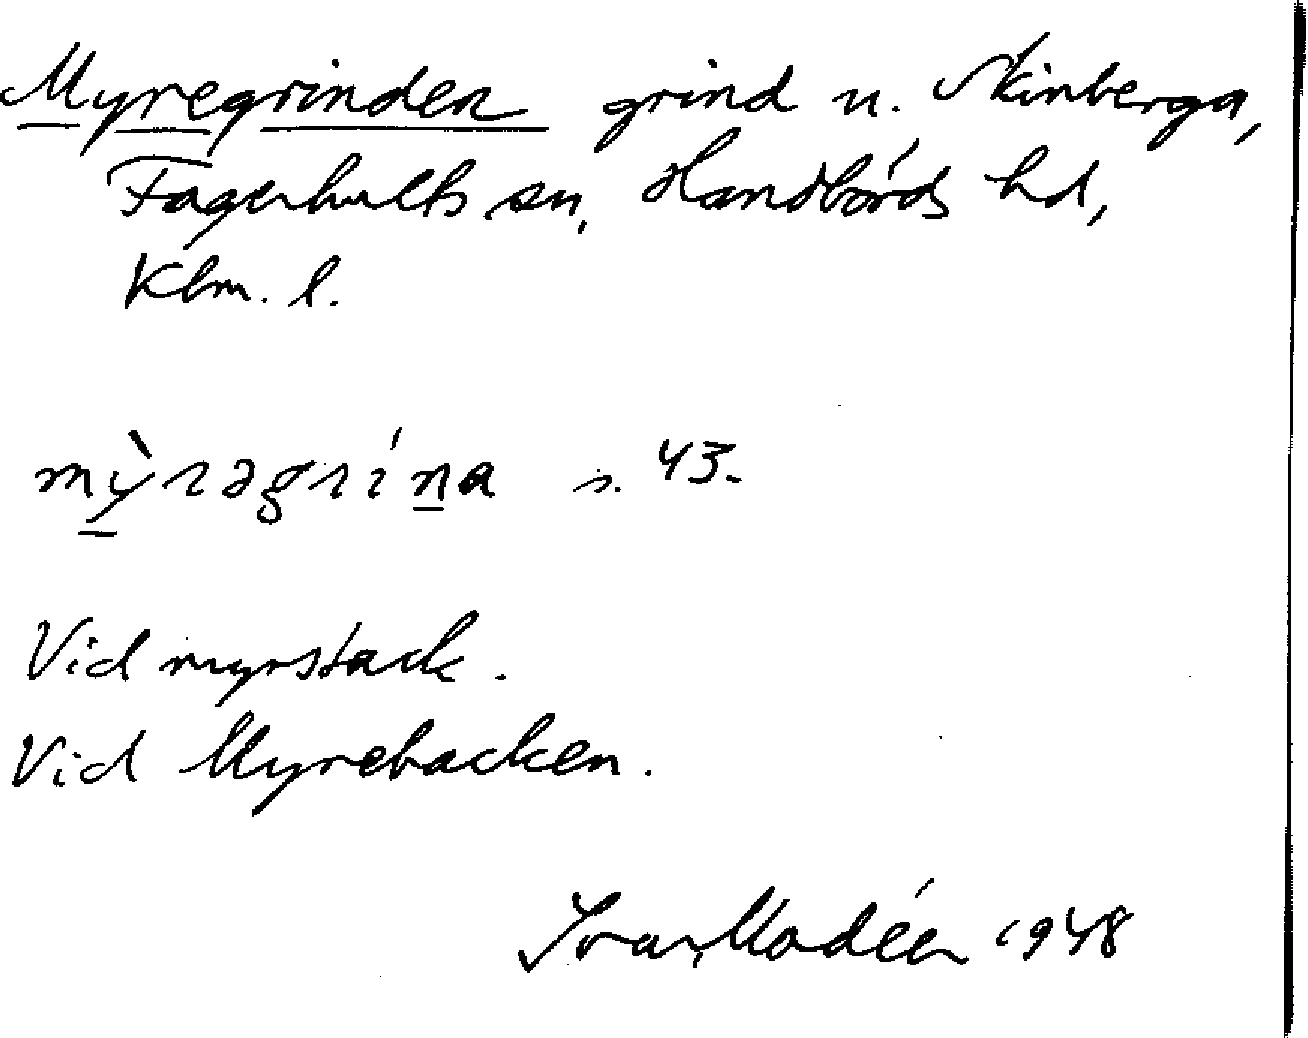 Myregrinden grind n. Skinberga,
Fagerhults sn, Handbörds hd,
Klm. l.
mỳrəgrína s. 43.
Vid myrstack.
Vid Myrebacken.
Ivar Modéer 1948